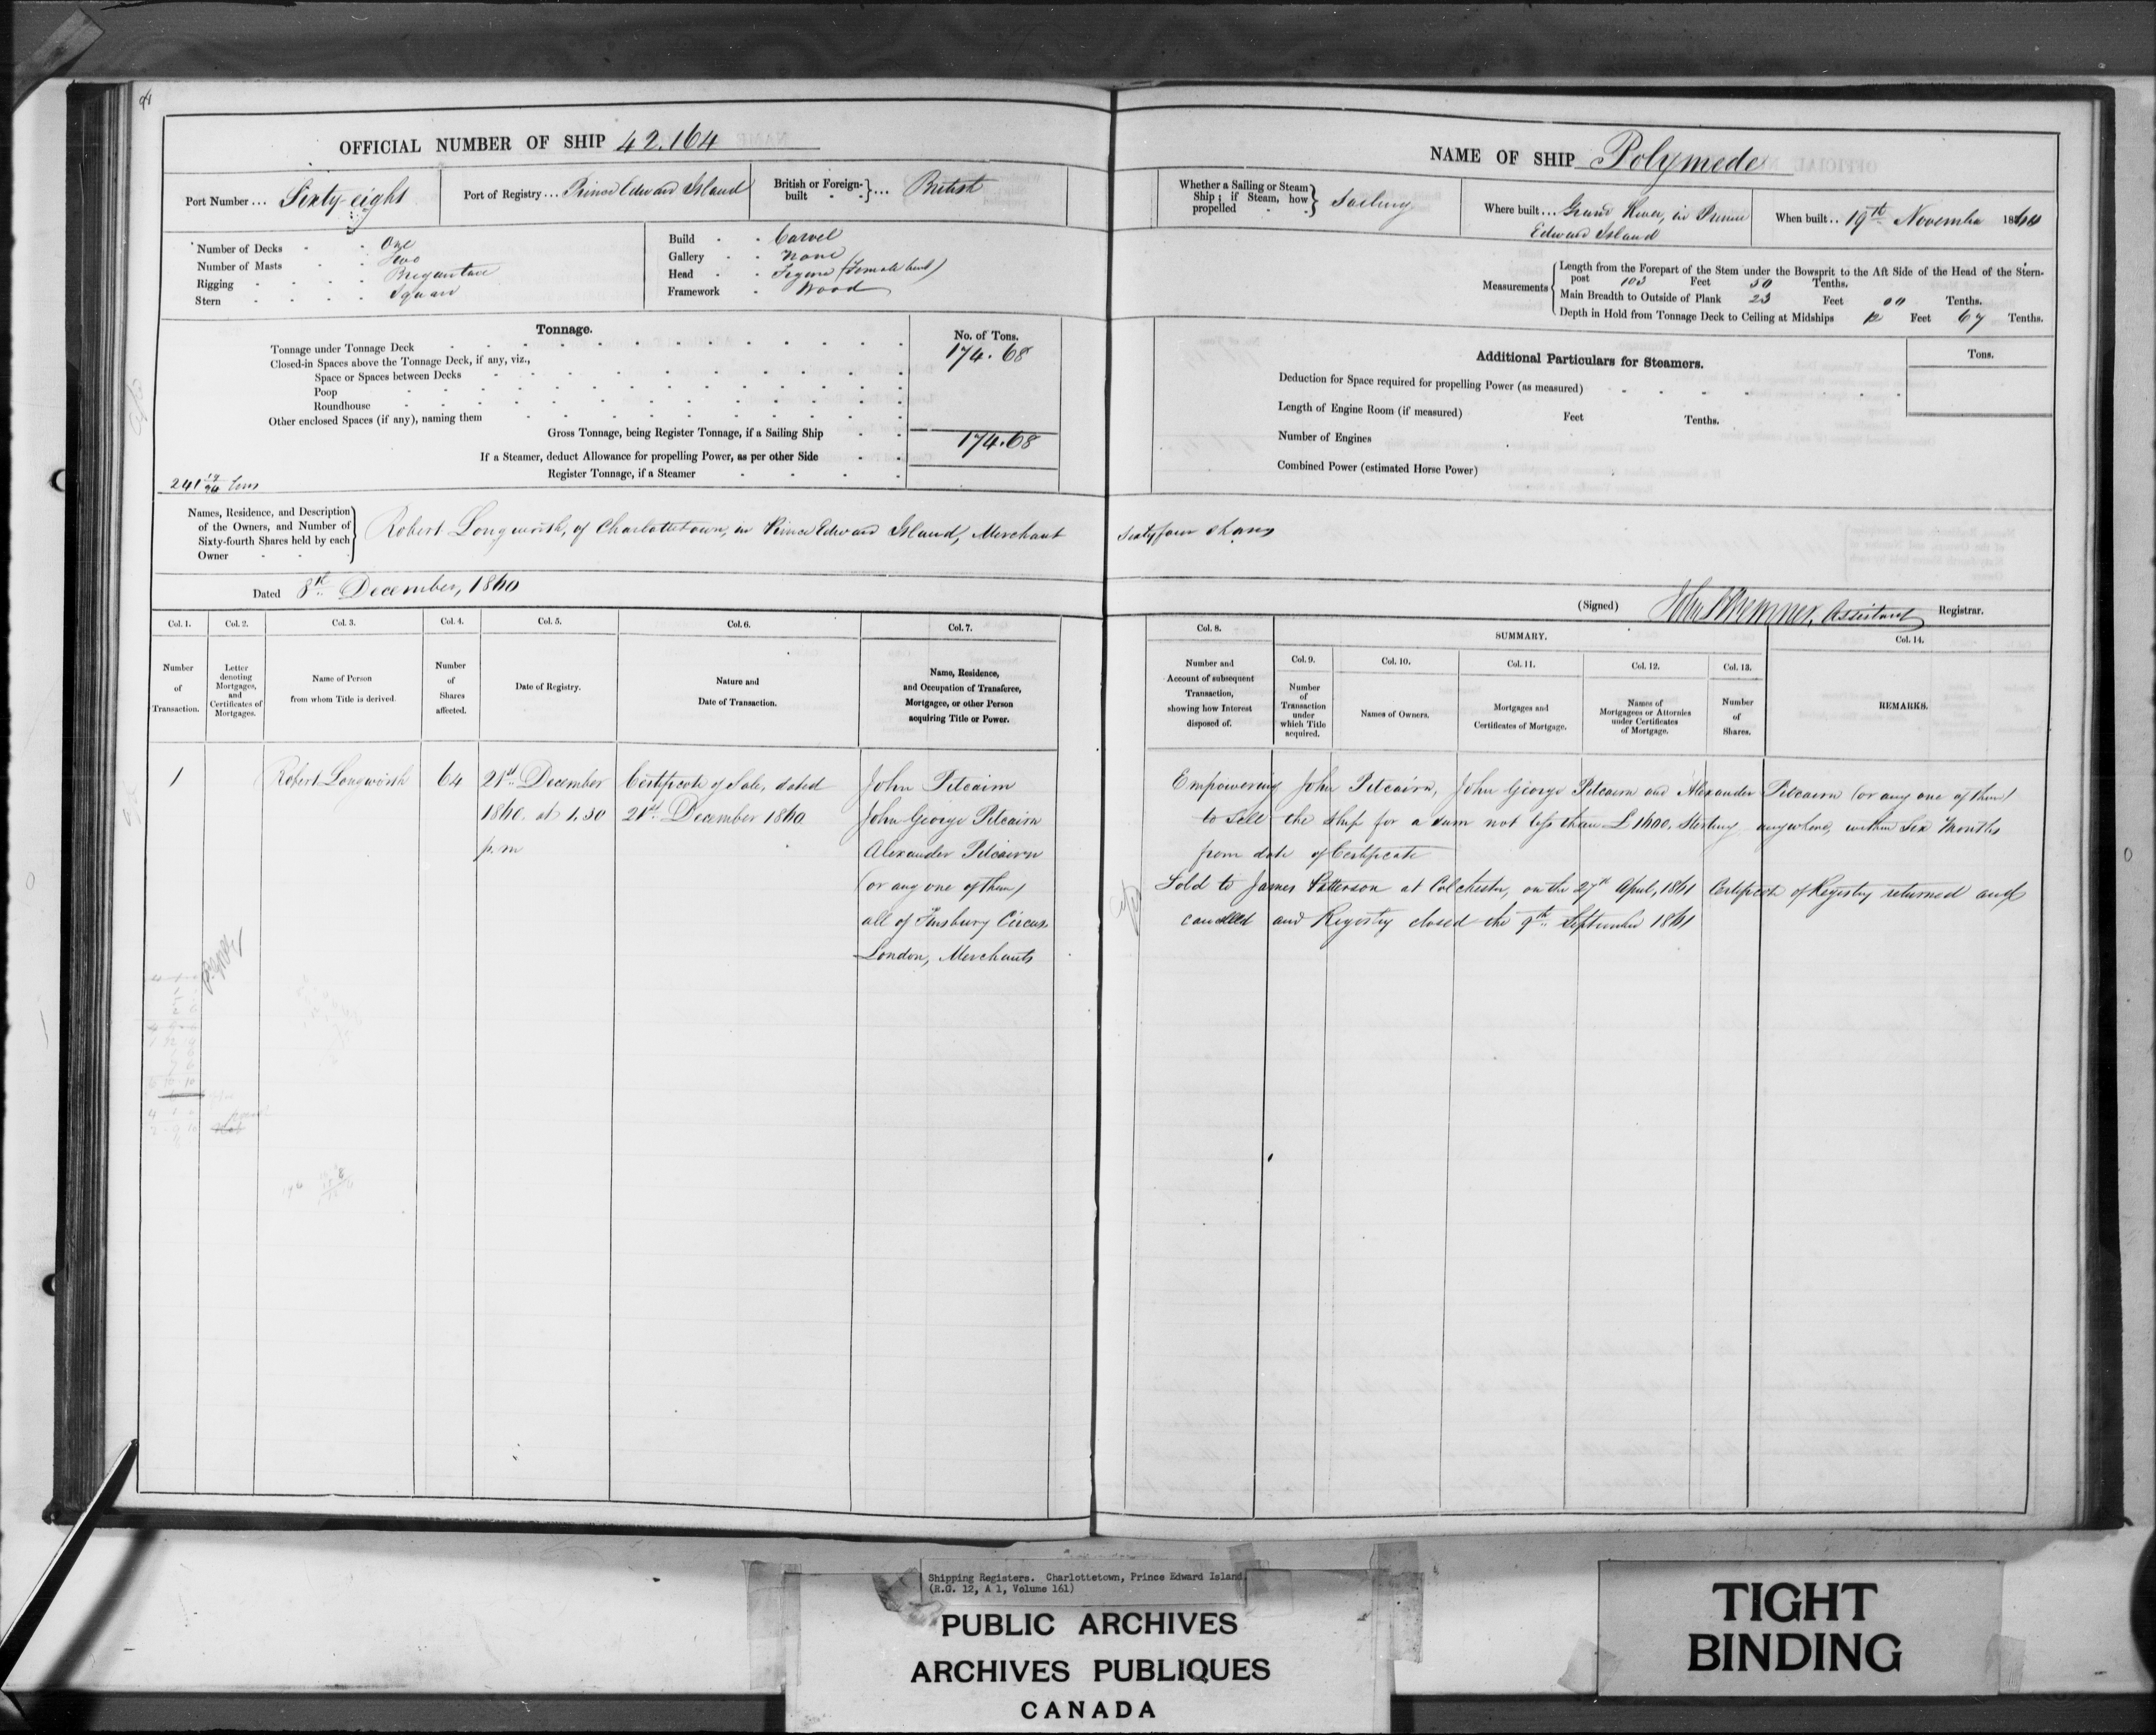 OFFICIAL NUMBER OF SHIP 42.164
Port Number ... Sixty-eight
Port of Registry ... Prince Edward Island
British or Foreign-built ... British
Number of Decks - - One
Number of Masts - - Two
Rigging - - - - Brigantine
Stern - - - - Square
Build - - Carvel
Gallery - - None
Head - - Figure (Female bust)
Framework - Wood
Tonnage.
No. of Tons.
Tonnage under Tonnage Deck 174.68
Closed-in Spaces above the Tonnage Deck, if any, viz.,
Space or Spaces between Decks
Poop
Roundhouse
Other enclosed Spaces (if any), naming them
Gross Tonnage, being Register Tonnage, if a Sailing Ship 174.68
If a Steamer, deduct Allowance for propelling Power, as per other Side
Register Tonnage, if a Steamer
241 17/94 tons
NAME OF SHIP Polymede
Whether a Sailing or Steam Ship; if Steam, how propelled Sailing
Where built ... Grand River, in Prince
Edward Island
When built .. 19th November 1860
Measurements
Length from the Forepart of the Stem under the Bowsprit to the Aft Side of the Head of the Stern-
post 103 Feet 50 Tenths.
Main Breadth to Outside of Plank 23 Feet 00 Tenths.
Depth in Hold from Tonnage Deck to Ceiling at Midships 12 Feet 67 Tenths.
Additional Particulars for Steamers.
Tons.
Deduction for Space required for propelling Power (as measured)
Length of Engine Room (if measured) Feet Tenths.
Number of Engines
Combined Power (estimated Horse Power)
Names, Residence, and Description
of the Owners, and Number of
Sixty-fourth Shares held by each
Owner
Robert Longworth, of Charlottetown, in Prince Edward Island, Merchant Sixty four Shares
Dated 8th December, 1860
(Signed) John Bremner, Assistant Registrar.
Col. 1.
Number
of
Transaction.
Col. 2.
Letter
denoting
Mortgages,
and
Certificates of
Mortgages.
Col. 3.
Name of Person
from whom Title is derived.
Col. 4.
Number
of
Shares
affected.
Col. 5.
Date of Registry.
Col. 6.
Nature and
Date of Transaction.
Col. 7.
Name, Residence,
and Occupation of Transferee,
Mortgagee, or other Person
acquiring Title or Power.
Col. 8.
Number and
Account of subsequent
Transaction,
showing how Interest
disposed of.
SUMMARY.
Col. 9.
Number
of
Transaction
under
which Title
acquired.
Col. 10.
Names of Owners.
Col. 11.
Mortgages and
Certificates of Mortgage.
Col. 12.
Names of
Mortgagees or Attornies
under Certificates
of Mortgage.
Col. 13.
Number
of
Shares.
Col. 14.
REMARKS.
1
Robert Longworth
64
21st December
1860. at 1.30
p.m
Certificate of Sale, dated
21st December 1860
John Pitcairn
John George Pitcairn
Alexander Pitcairn
(or any one of them)
all of Finsbury Circus
London, Merchants
Empowering John Pitcairn, John George Pitcairn and Alexander Pitcairn (or any one of them)
to sell the Ship for a sum not less than £1600. Sterling anywhere, within Six Months
from date of Certificate
Sold to James Patterson at Colchester, on the 27th April, 1861 Certificate of Registry returned and
cancelled and Registry closed the 9th September 1861
Shipping Registers. Charlottetown, Prince Edward Island.
(R.G. 12, A 1, Volume 161)
PUBLIC ARCHIVES
ARCHIVES PUBLIQUES
CANADA
TIGHT
BINDING